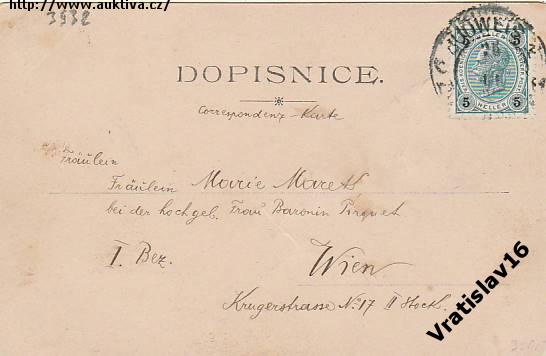 http://www.auktiva.cz/
3932
BUDWEIS
5 HELLER 5
DOPISNICE.
Correspondenz-Karte
Fräulein
Fräulein Marie Marets
bei der hochgeb. Frau Baronin Pirquet
I. Bez. Wien
Krugerstrasse No. 17 II Stock.
Vratislav16